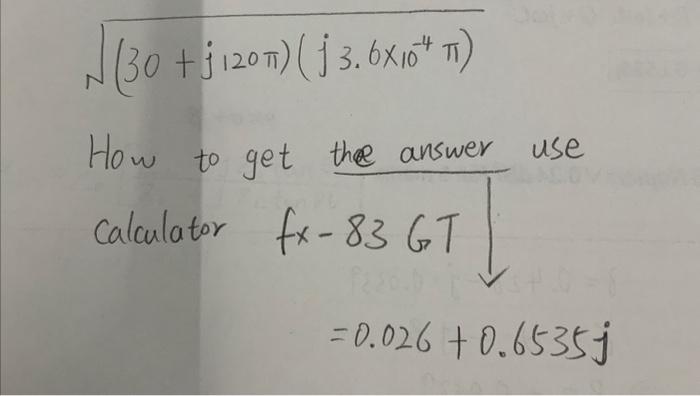 √(30 + j120π)(j3.6×10⁻⁴ π)
How to get the answer use
calculator fx-83 GT
=0.026 + 0.6535j